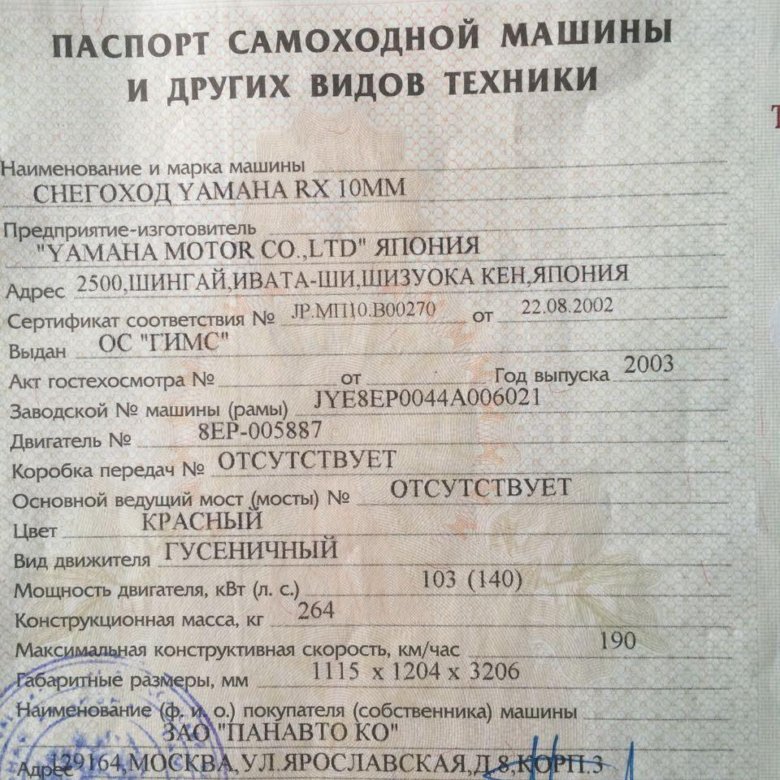 ПАСПОРТ САМОХОДНОЙ МАШИНЫ
И ДРУГИХ ВИДОВ ТЕХНИКИ
Наименование и марка машины
СНЕГОХОД YAMAHA RX 10MM
Предприятие-изготовитель
"YAMAHA MOTOR CO.,LTD" ЯПОНИЯ
Адрес 2500,ШИНГАЙ,ИВАТА-ШИ,ШИЗУОКА КЕН,ЯПОНИЯ
Сертификат соответствия № JP.МП10.В00270 от 22.08.2002
Выдан ОС "ГИМС"
Акт гостехосмотра № от Год выпуска 2003
Заводской № машины (рамы) JYE8EP0044A006021
Двигатель № 8EP-005887
Коробка передач № ОТСУТСТВУЕТ
Основной ведущий мост (мосты) № ОТСУТСТВУЕТ
Цвет КРАСНЫЙ
Вид движителя ГУСЕНИЧНЫЙ
Мощность двигателя, кВт (л. с.) 103 (140)
Конструкционная масса, кг 264
Максимальная конструктивная скорость, км/час 190
Габаритные размеры, мм 1115 x 1204 x 3206
Наименование (ф. и. о.) покупателя (собственника) машины
ЗАО "ПАНАВТО КО"
Адрес 129164,МОСКВА,УЛ.ЯРОСЛАВСКАЯ,Д.8,КОРП.3